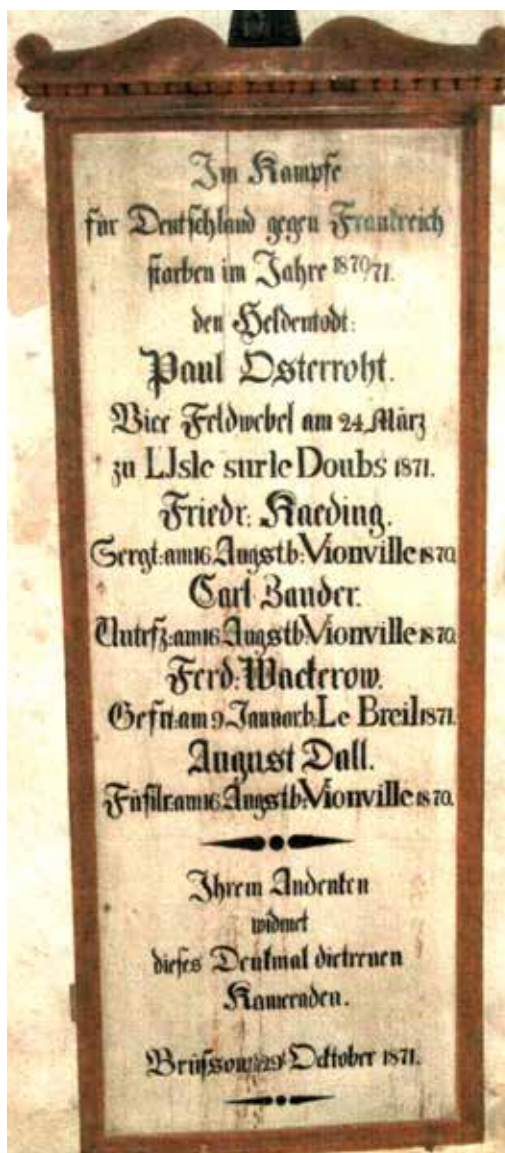 Im Kampfe
für Deutschland gegen Frankreich
starben im Jahre 1870/71.
den Heldentodt:
Paul Osterroht.
Vice Feldwebel am 24. März
zu L'Isle sur le Doubs 1871.
Friedr: Kaeding.
Sergt: am 16. Augst b: Vionville 1870.
Carl Zander.
Untrfz: am 16. Augst b: Vionville 1870.
Ferd: Wackerow.
Gefrt: am 9. Januar b: Le Breil 1871.
August Dall.
Füsilr: am 16. Augst b: Vionville 1870.
Ihrem Andenken
widmet
dieses Denkmal die treuen
Kameraden.
Brüssow 29t Ocktober 1871.